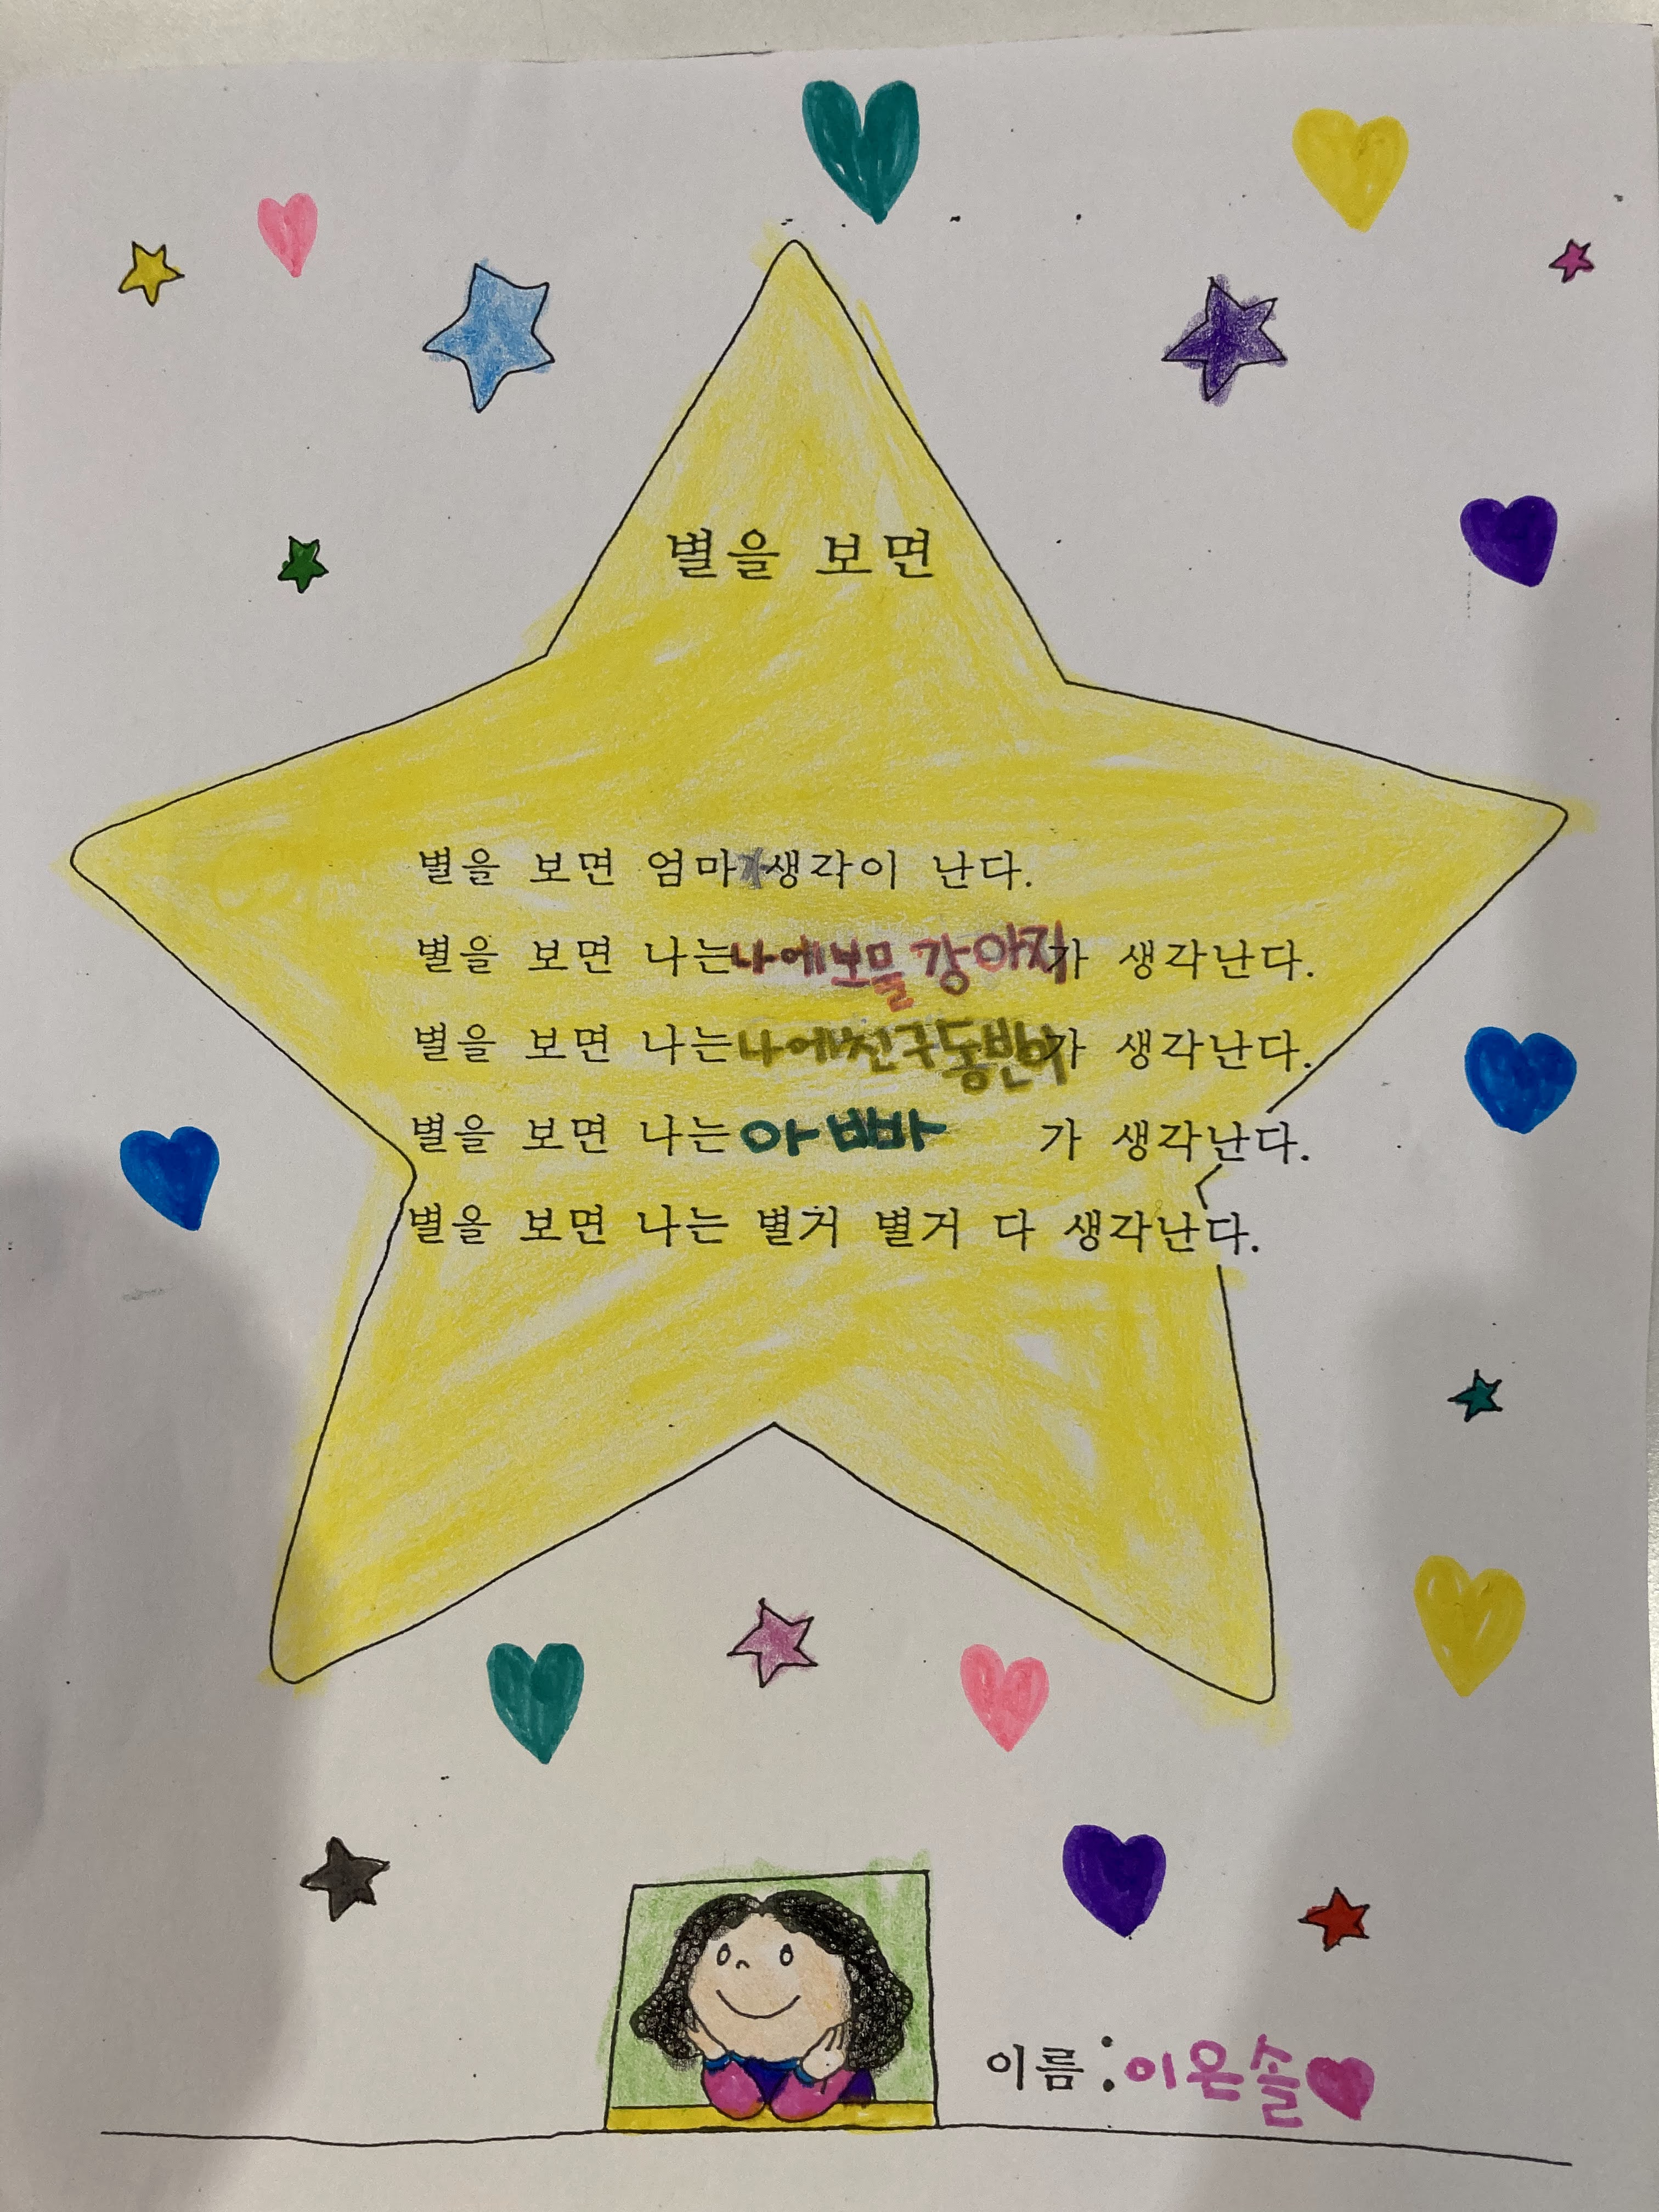 별을 보면
별을 보면 엄마 생각이 난다.
별을 보면 나는 나에 보물 강아지가 생각난다.
별을 보면 나는 나에 친구 동반이가 생각난다.
별을 보면 나는 아빠가 생각난다.
별을 보면 나는 별거 별거 다 생각난다.
이름: 이은솔